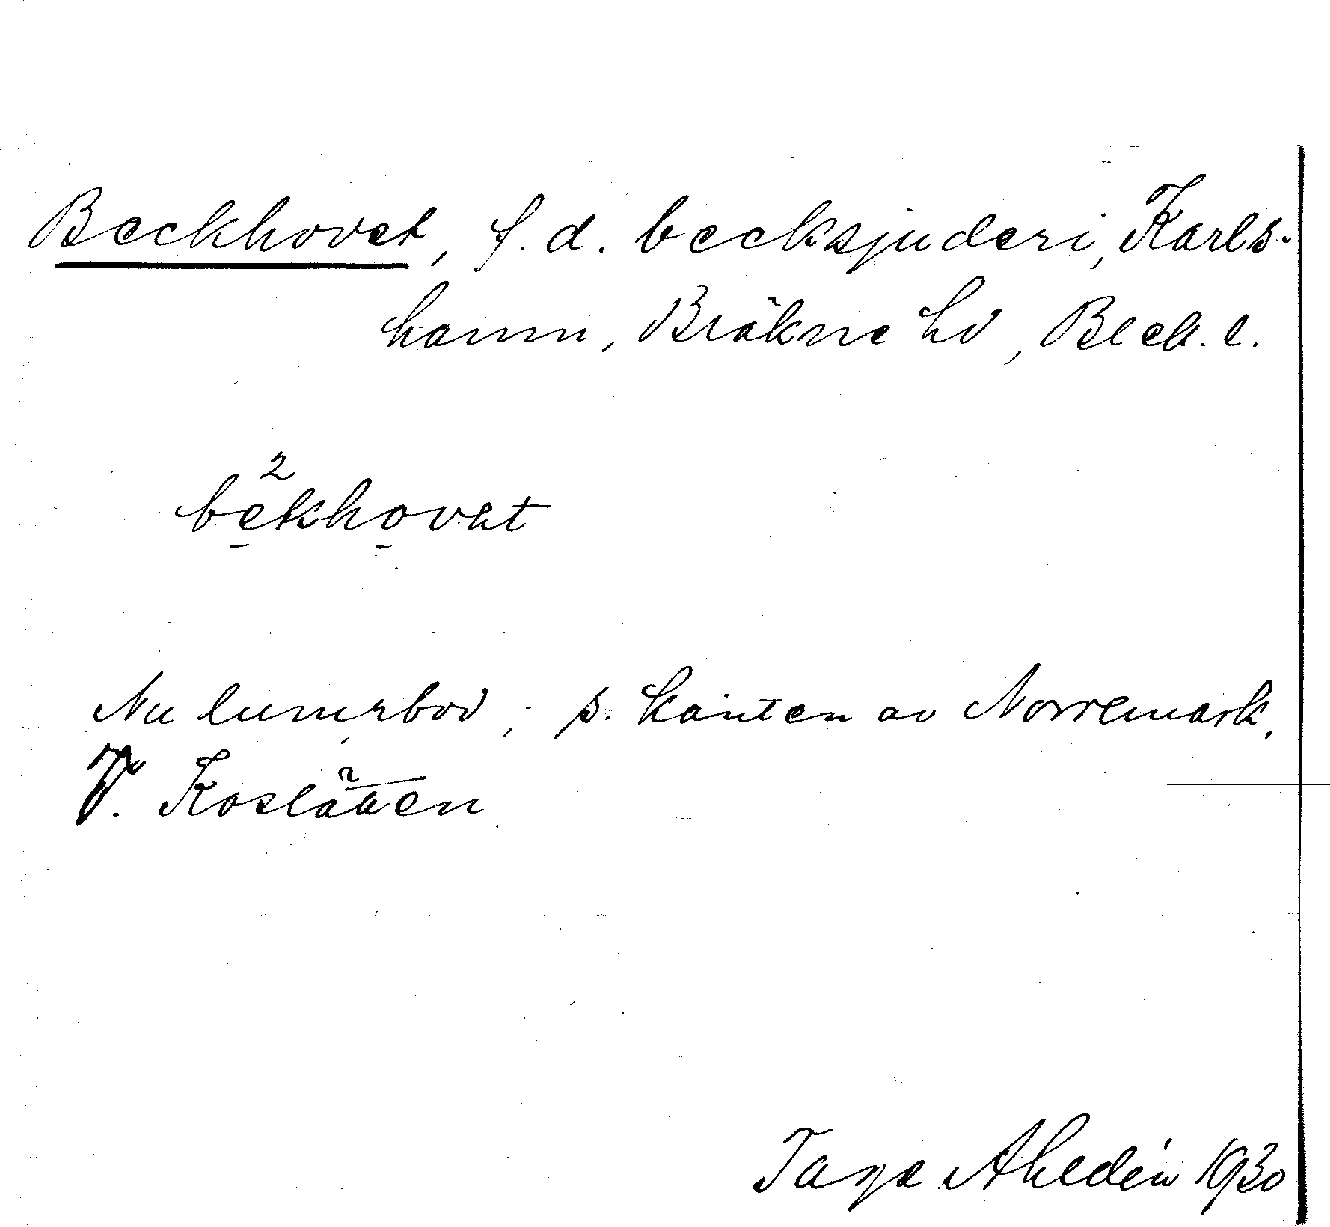 Beckhovet, f.d. becksjuderi, Karls-
hamn, Bräkne hd, Blek. l.
2
bekhovat
Nu lumpbod; s. kanten av Norremark,
V. Koslätten
Tage Ahldén 1930